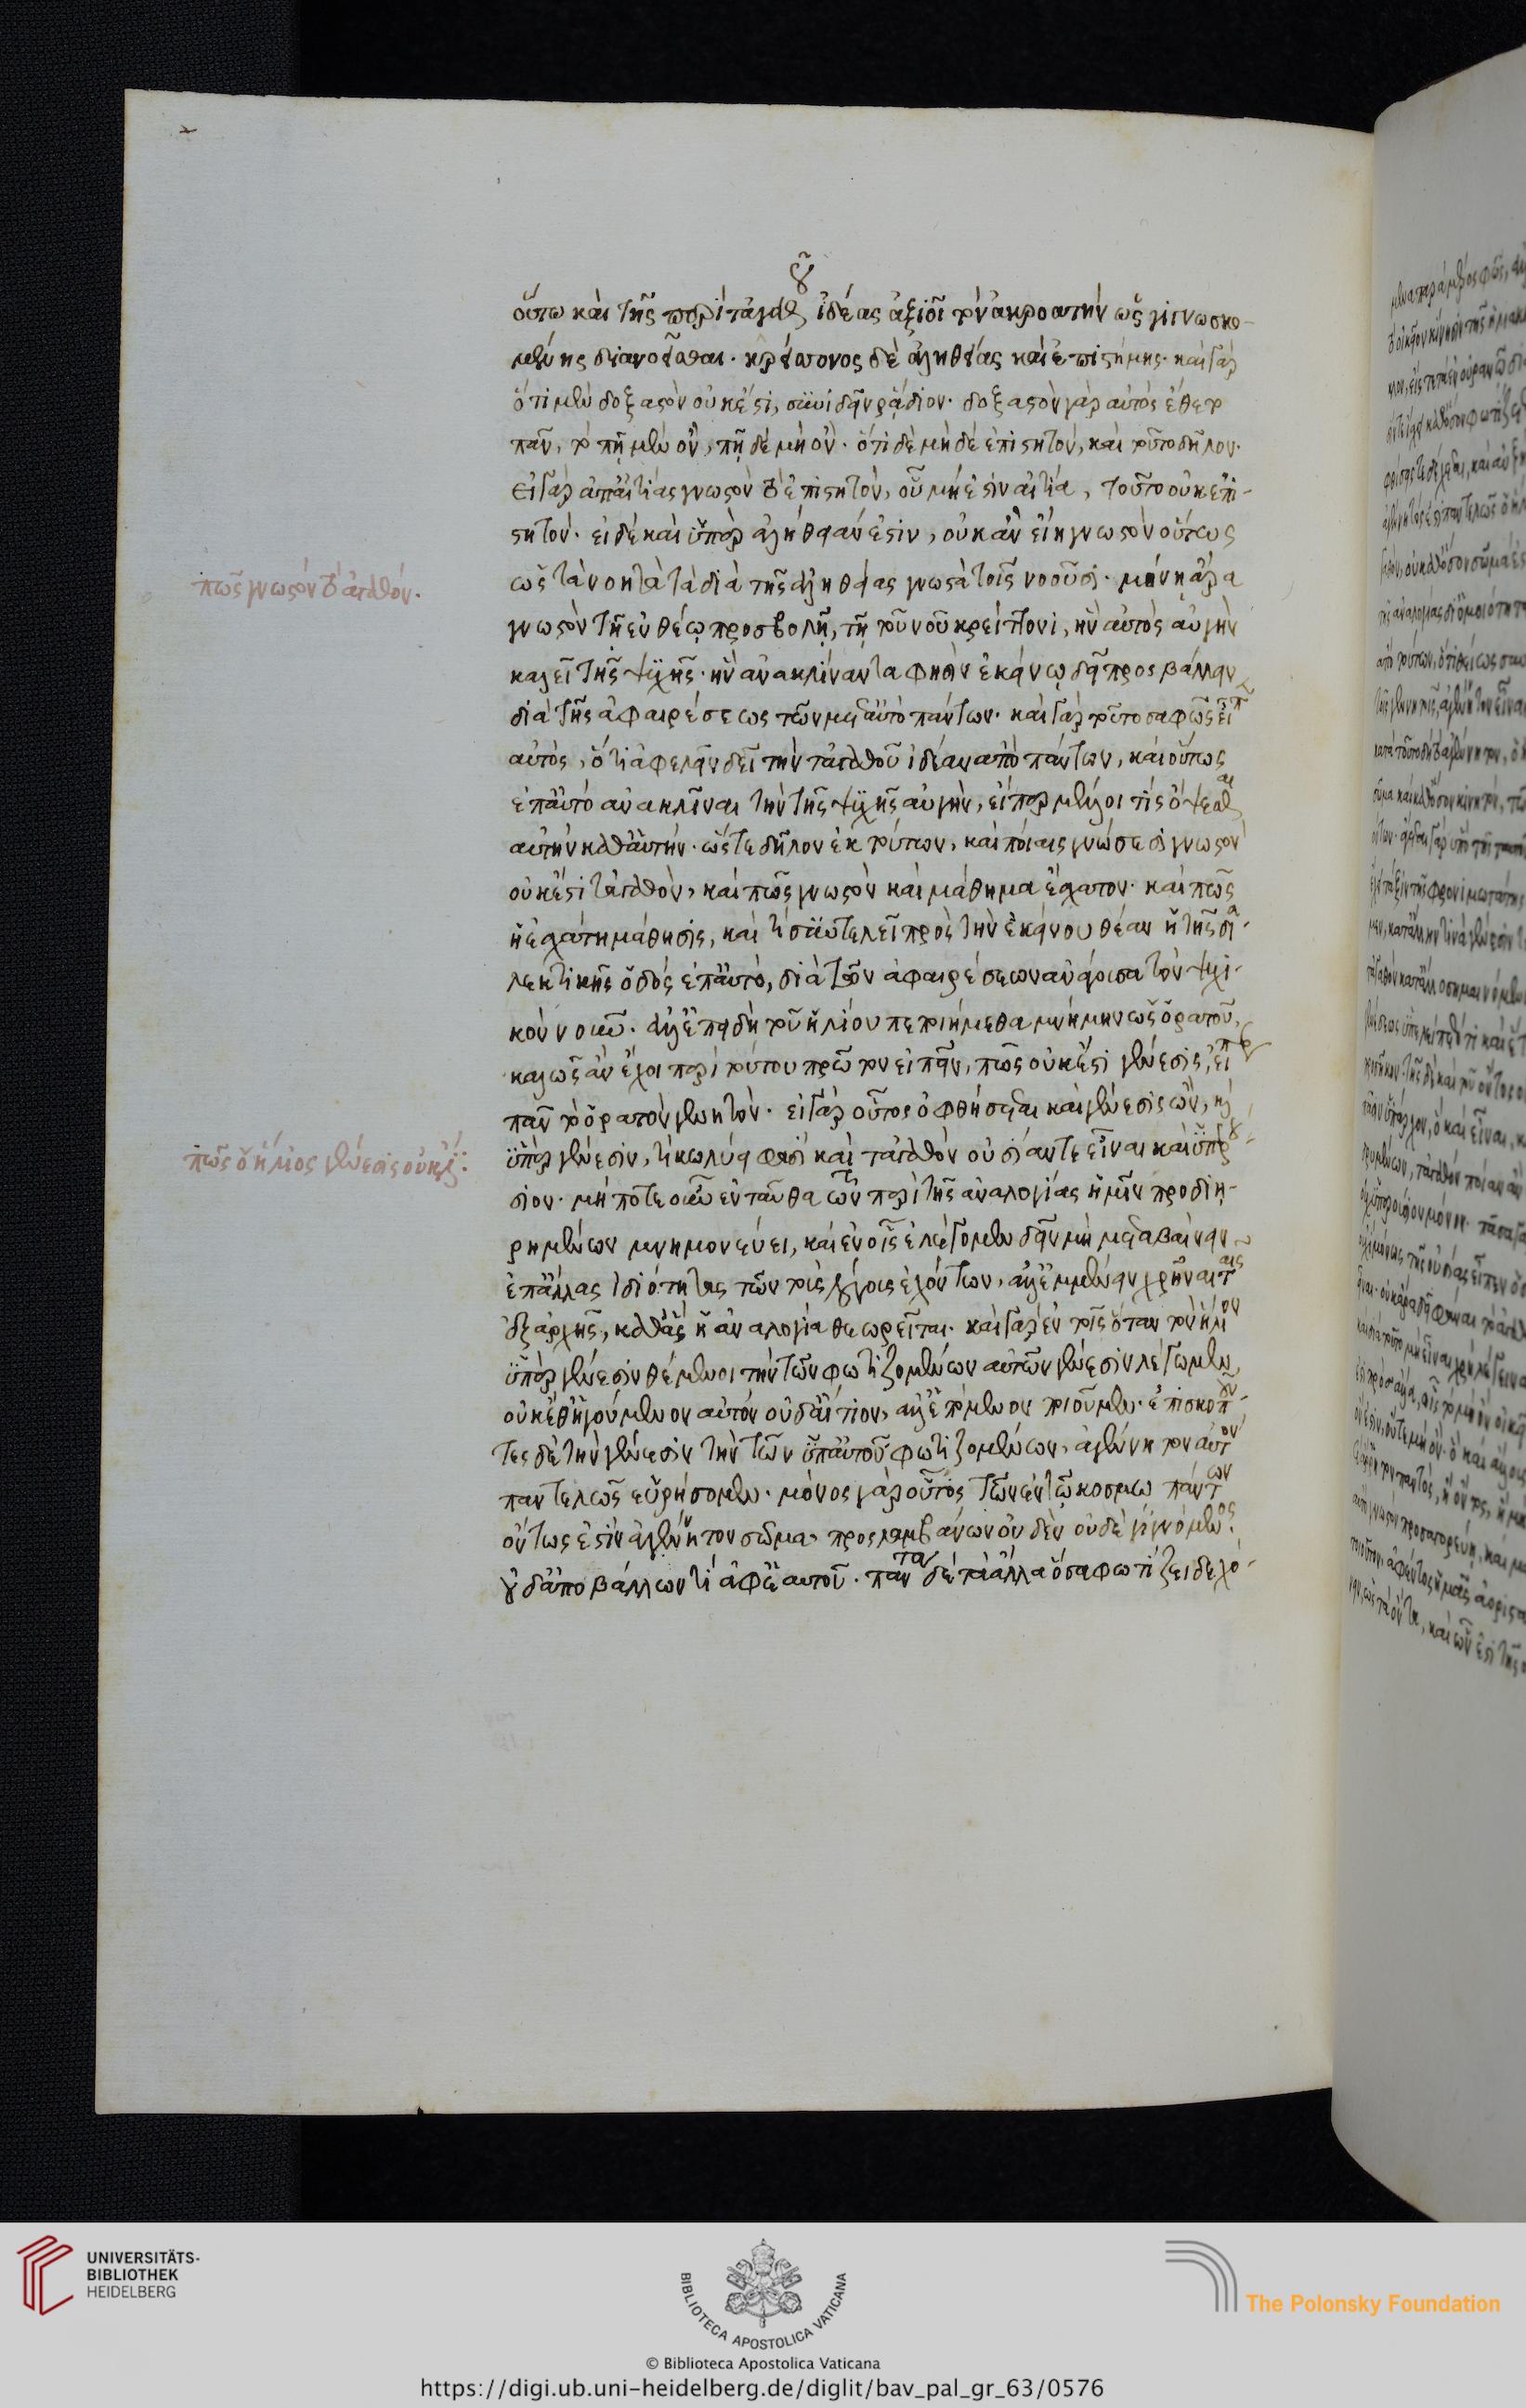 οὕτω καὶ τῆς περὶ τἀγαθοῦ ἰδέας ἀξιοῖ τὸν ἀκροατὴν ὡς γινωσκο-
μένης διανοεῖσθαι. κρείττονος δὲ ἀληθείας καὶ ἐπιστήμης. καὶ γὰρ
ὅτι μὲν δοξαστὸν οὐκ ἔστι, συνιδεῖν ῥᾴδιον. δοξαστὸν γὰρ αὐτὸς ἔθετο
πᾶν, τὸ πῆ μὲν ὂν, πῆ δὲ μὴ ὄν. ὅτι δὲ μηδὲ ἐπιστητὸν, καὶ τοῦτο δῆλον.
εἰ γὰρ ἀπ' αἰτίας γνωστὸν τὸ ἐπιστητὸν, οὗ μή ἐστιν αἰτία, τοῦτο οὐκ ἐπι-
στητόν. εἰ δὲ καὶ ὑπὲρ ἀλήθειάν ἐστιν, οὐκ ἂν εἴη γνωστὸν οὕτως
πῶς γνωστόν τὸ ἀγαθόν.
ὡς τὰ νοητὰ τὰ διὰ τῆς ἀληθείας γνωστὰ τοῖς νοοῦσι. μόνῃ ἄρα
γνωστὸν τῇ ἐνθέῳ προσβολῇ, τῇ τοῦ νοῦ κρείττονι, ἣν αὐτὸς αὐγὴν
καλεῖ τῆς ψυχῆς. ἣν ἀνακλίναντα φησὶν ἐκείνῳ δεῖ προσβάλλειν
διὰ τῆς ἀφαιρέσεως τῶν μετ' αὐτὸ πάντων. καὶ γὰρ τοῦτο σαφῶς εἶπεν
αὐτὸς, ὅτι ἀφελεῖν δεῖ τὴν τἀγαθοῦ ἰδέαν ἀπὸ πάντων, καὶ οὕτως
ἐπ' αὐτὸ ἀνακλῖναι τὴν τῆς ψυχῆς αὐγὴν, εἴπερ μέλλοι τίς ὄψεσθαι
αὐτὴν καθ' αὑτήν. ὥστε δῆλον ἐκ τούτων, καὶ ποίαις γνώσεσι γνωστὸν
οὐκ ἔστι τἀγαθὸν, καὶ πῶς γνωστὸν καὶ μάθημα ἔσχατον. καὶ πῶς
ἡ ἐσχάτη μάθησις, καὶ τί συντελεῖ πρὸς τὴν ἐκείνου θέαν ἡ τῆς δια-
λεκτικῆς ὁδὸς ἐπ' αὐτὸ, διὰ τῶν ἀφαιρέσεων ἀνάγουσα τὸν ψυχι-
κὸν νοῦν. ἀλλ' ἐπειδὴ τοῦ ἡλίου πεποιήμεθα μνήμην ὡς ὁρατοῦ,
καλῶς ἂν ἔχοι περὶ τούτου πρῶτον εἰπεῖν, πῶς οὐκ ἔστι γένεσις, εἴπερ
πᾶν τὸ ὁρατὸν γενητόν. εἰ γὰρ οὗτος ὀφθήσεται καὶ γένεσις ὢν, καὶ
πῶς ὁ ἥλιος γένεσις οὐκ ἔστι:
ὑπὲρ γένεσιν, τί κωλύει φασὶ καὶ τἀγαθὸν οὐσίαν τε εἶναι καὶ ὑπερού-
σιον. μήποτε οὖν ἐνταῦθα τῶν περὶ τῆς ἀναλογίας ἡμῖν προδιῃ-
ρημένων μνημονεύει, καὶ ἐν οἷς ἐλέγομεν δεῖν μὴ μεταβαίνειν
ἐπ' ἄλλας ἰδιότητας τῶν τοὺς λόγους ἐχόντων, ἀλλ' ἐμμένειν χρῆναι ταῖς
ἐξ ἀρχῆς, καθ' ἃς ἡ ἀναλογία θεωρεῖται. καὶ γὰρ ἐν τοῖς ὅταν τὸν ἥλιον
ὑπὲρ γένεσιν θέμενοι τὴν τῶν φωτιζομένων αὐτῶν γένεσιν λέγωμεν,
οὐκέθ' ἡγούμενον αὐτὸν οὐδ' αἴτιον, ἀλλ' ἑπόμενον ποιοῦμεν. ἐπισκοποῦν-
τες δὲ τὴν γένεσιν τὴν τῶν ὑπ' αὐτοῦ φωτιζομένων, ἀγένητον αὐτὸν
παντελῶς εὑρήσομεν. μόνος γὰρ οὗτος τῶν ἐν τῷ κόσμῳ πάντων
ὄντως ἐστὶν ἀγένητον σῶμα, προσλαμβάνων οὐδὲν οὐδὲ γιγνόμενος.
οὐδ' ἀποβάλλων τί ἀφ' ἑαυτοῦ. πάντα δὲ τὰ ἄλλα ὅσα φωτίζει δεχό-
UNIVERSITÄTS-
BIBLIOTHEK
HEIDELBERG
BIBLIOTECA APOSTOLICA VATICANA
The Polonsky Foundation
© Biblioteca Apostolica Vaticana
https://digi.ub.uni-heidelberg.de/diglit/bav_pal_gr_63/0576